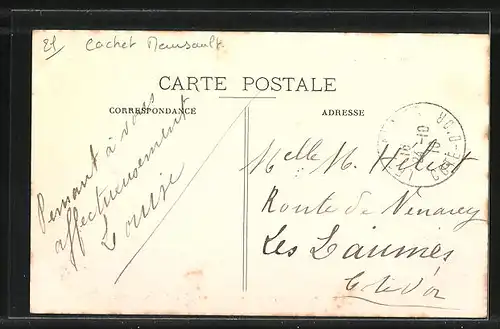 21 Cachet Meursault
CARTE POSTALE
CORRESPONDANCE
ADRESSE
Pensant à vous
affectueusement
Louise
Melle M. Héliot
Route de Venarey
Les Laumes
Côte d'Or
CÔTE-D'OR